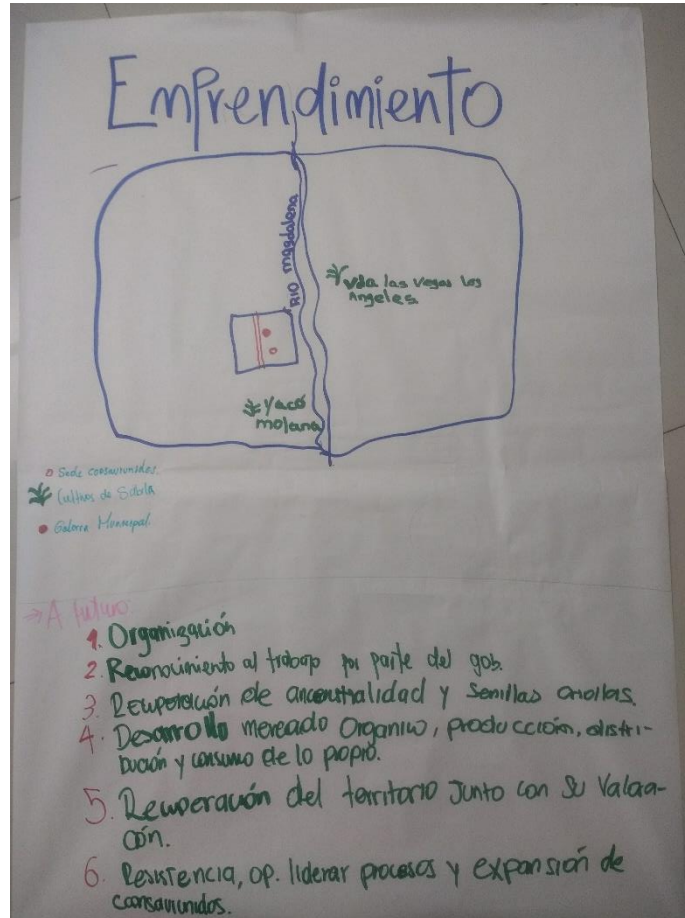 Emprendimiento
RIO magdalena
Vda las vegas los
Angeles
Yacó
molana
Sede consaviunidos.
Cultivos de Sábila
Galería Municipal.
A futuro
1. Organización
2. Reconocimiento al trabajo por parte del gob.
3. Recuperación de ancentralidad y Semillas criollas.
4. Desarrollo mercado Organico, producción, distri-
bución y consumo de lo propio.
5. Recuperación del territorio Junto con Su Valora-
ción.
6. Resistencia, op. liderar procesos y expansión de
consaviunidos.